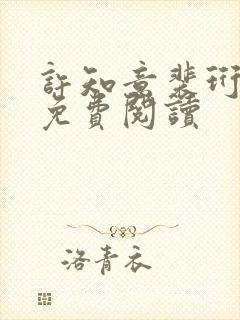 許知意裴珩
免費閱讀
洛青衣